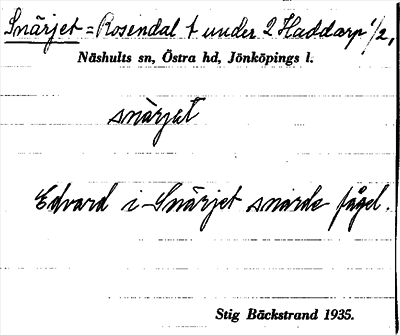 Snärjet = Rosendal t. under 2 Haddarp 1/2,
Näshults sn, Östra hd, Jönköpings l.
snärjet
Edvard i Snärjet snarde fågel.
Stig Bäckstrand 1935.